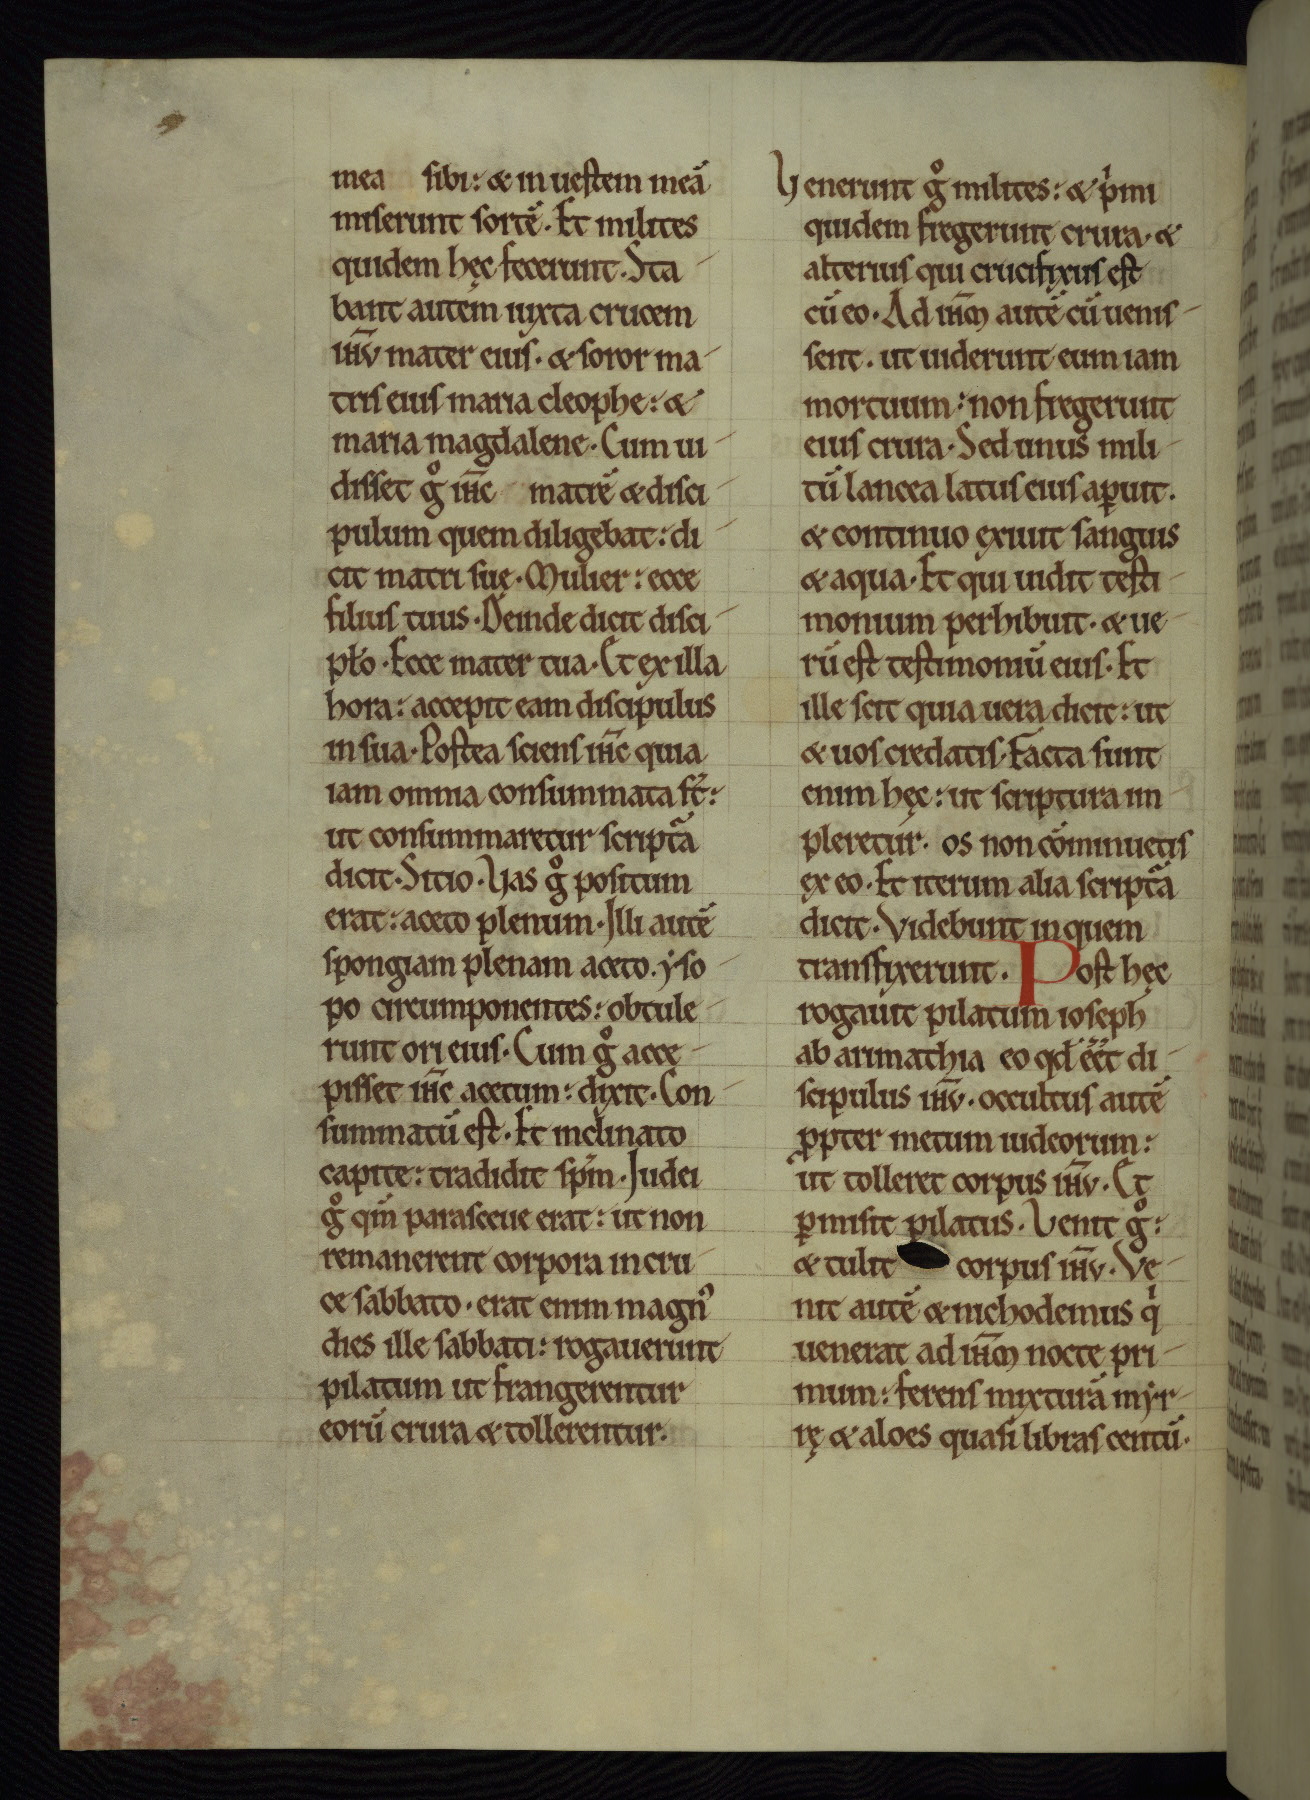 mea sibi: & in uestem meā
miserunt sortē. Et milites
quidem hęc fecerunt. Sta
bant autem iuxta crucem
ih̄v mater eius. & soror ma
tris eius maria cleophe: &
maria magdalene. Cum ui
disset g̊ ih̄c matrē & disci
pulum quem diligebat: di
cit matri suę. Mulier: ecce
filius tuus. Deinde dicit disci
pło. Ecce mater tua. Et ex illa
hora: accepit eam discipulus
in sua. Postea sciens ih̄c quia
iam omnia consummata st̄:
ut consummaretur scriptᷓa
dicit. Sitio. Vas g̊ positum
erat: aceto plenum. Illi autē
spongiam plenam aceto. yso
po circumponentes: obtule
runt ori eius. Cum g̊ acce
pisset ih̄c acetum: dixit. Con
summatū est. Et inclinato
capite: tradidit sp̄m. Iudei
g̊ qm̄ parasceue erat: ut non
remanerent corpora in cru
ce sabbato. erat enim magnꝰ
dies ille sabbati: rogauerunt
pilatum ut frangerentur
eorū crura & tollerentur.
Venerunt g̊ milites: & pͥmi
quidem fregerunt crura. &
alterius qui crucifixus est
cū eo. Ad ih̄m autē cū uenis
sent. ut uiderunt eum iam
mortuum: non fregerunt
eius crura. Sed unus mili
tū lancea latus eius aꝑuit.
& continuo exiuit sanguis
& aqua. Et qui uidit testi
monium perhibuit. & ue
rū est testimoniū eius. Et
ille scit quia uera dicit: ut
& uos credatis. Facta sunt
enim hęc: ut scriptura im
pleretur. os non cōminuetis
ex eo. Et iterum alia scriptᷓa
dicit. Videbunt in quem
transfixerunt. Post hęc
rogauit pilatum ioseph
ab arimathia eo qđ eēt di
scipulus ih̄v. occultus autē
ꝓpter metum iudeorum:
ut tolleret corpus ih̄v. Et
ꝑmisit pilatus. Venit g̊:
& tulit corpus ih̄v. Ve
nit autē & nichodemus qͥ
uenerat ad ih̄m nocte pri
mum: ferens mixturā myr
rę & aloes quasi libras centū.